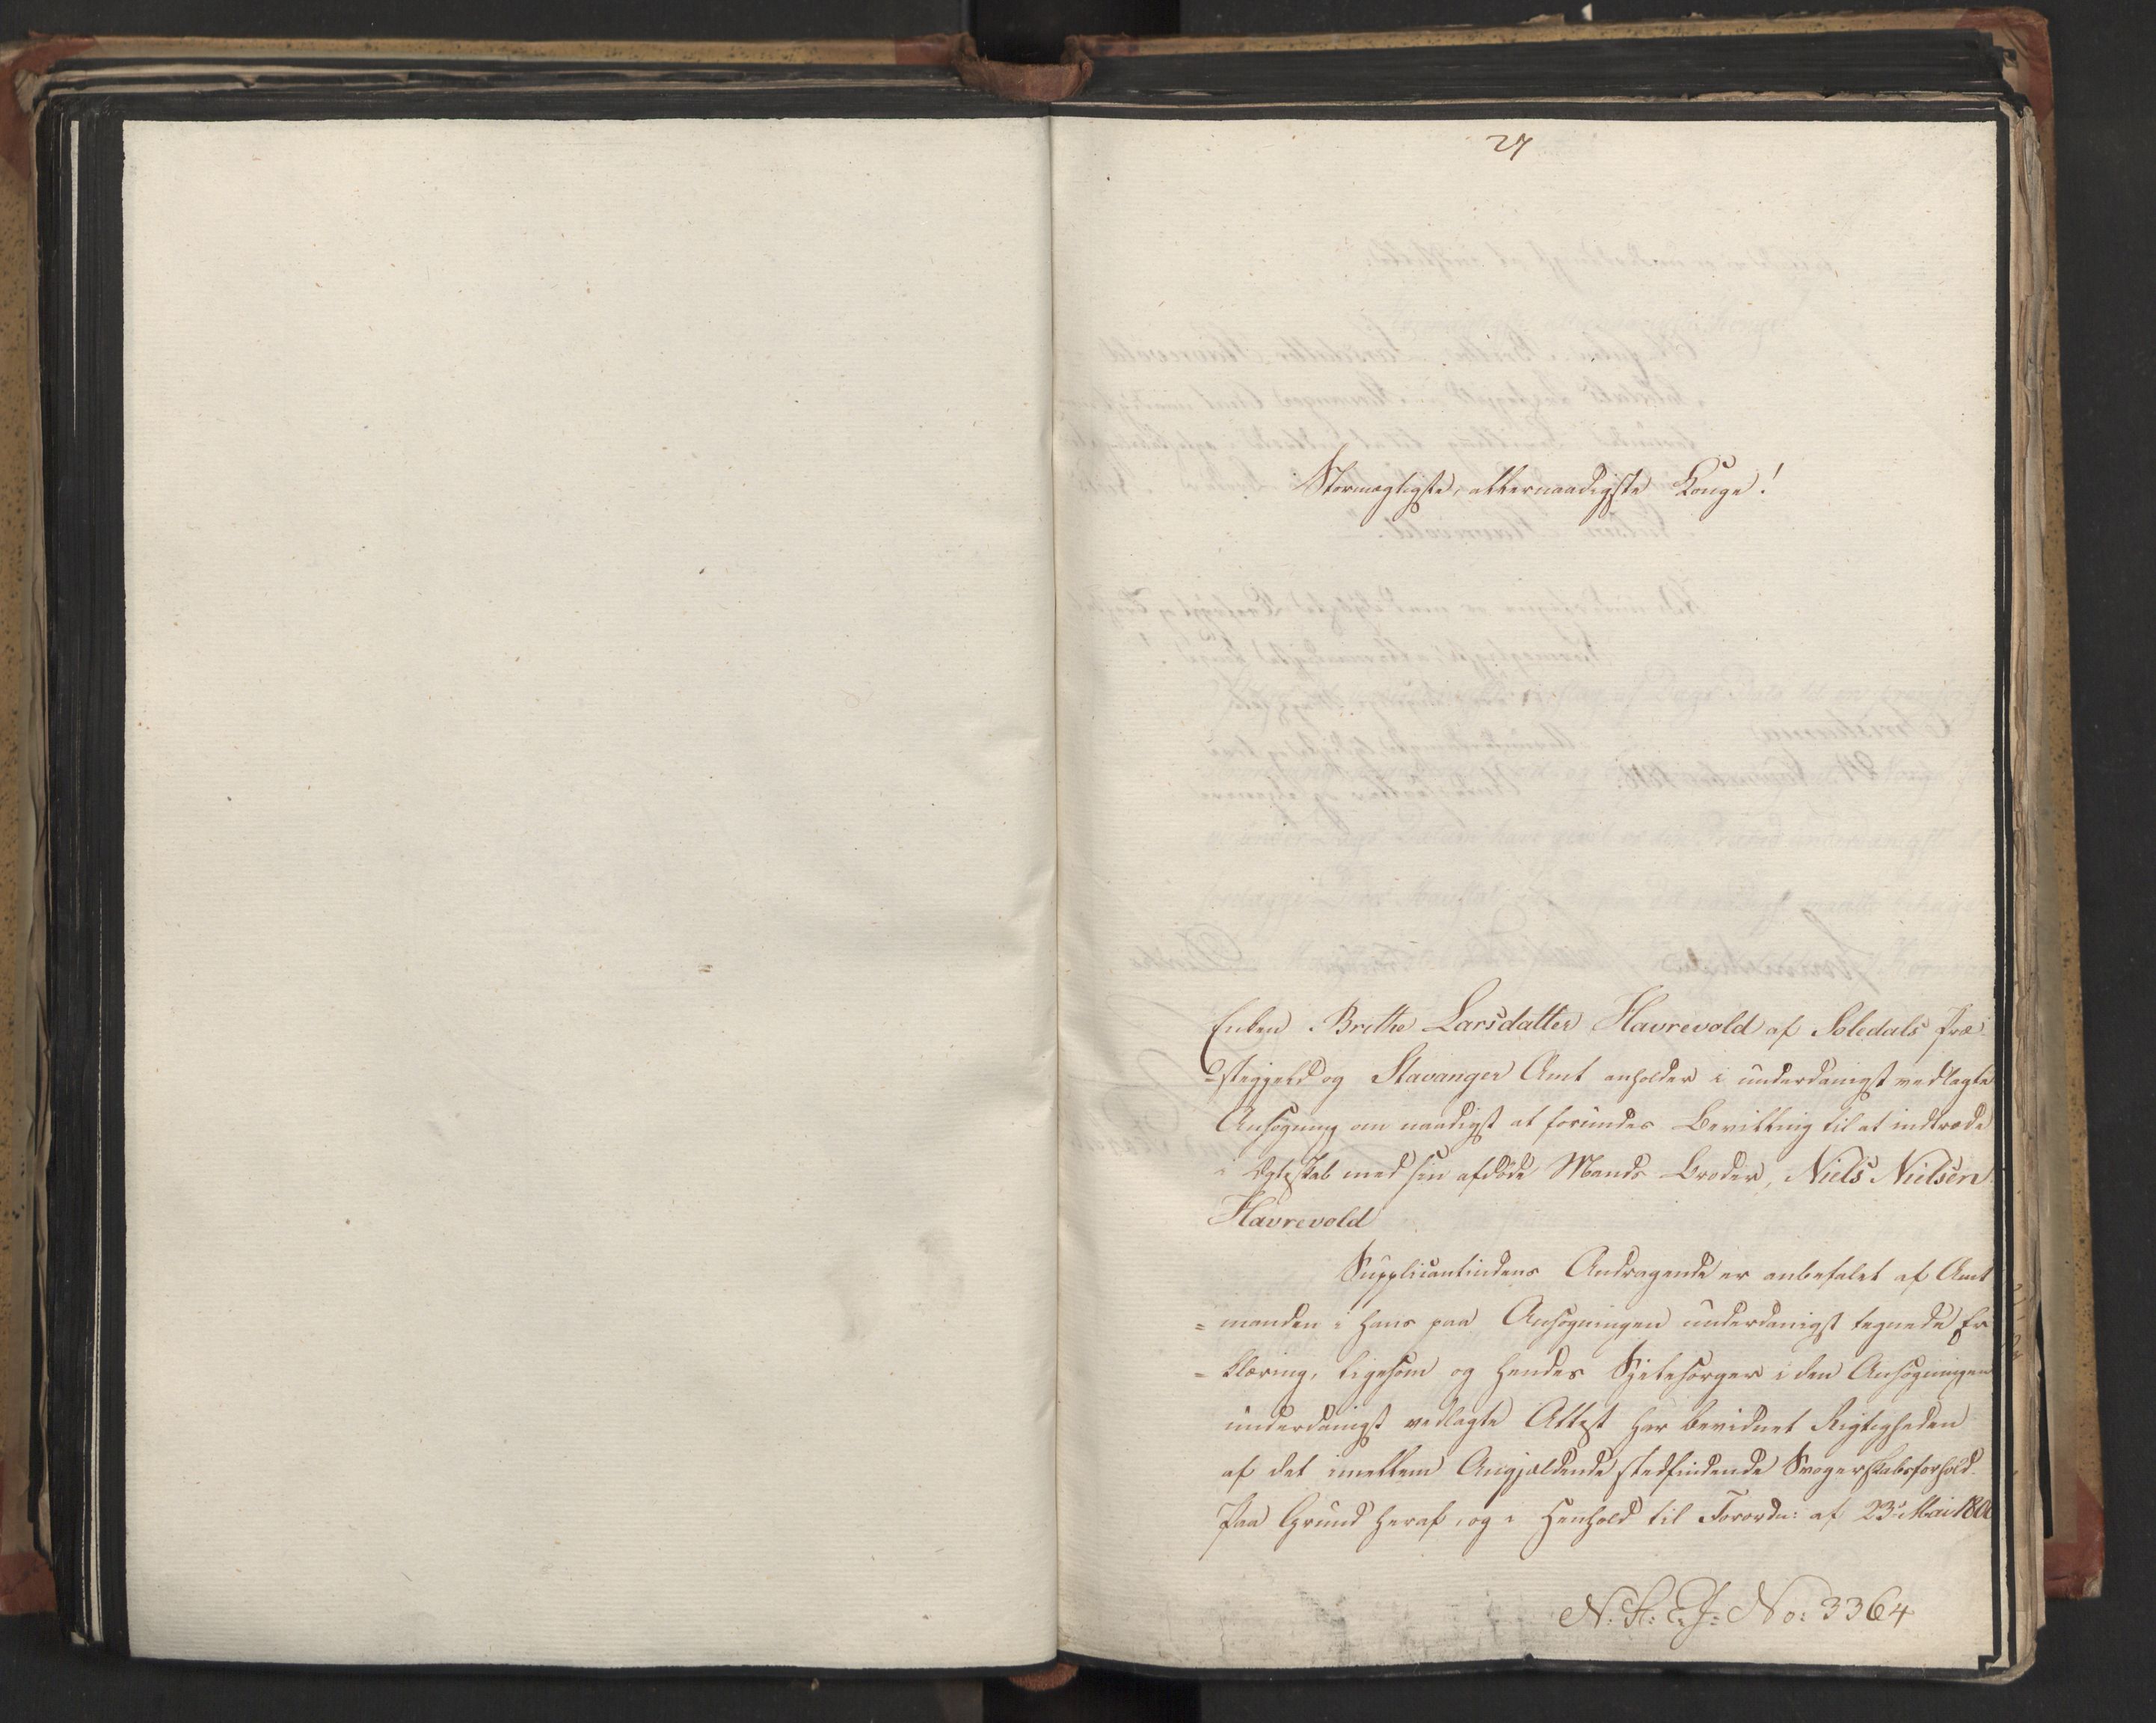 27
Stormægtigste, allernaadigste Konge!
Enken Brithe Larsdatter Havrevold af Soledals Præ-
=stegjeld og Stavanger Amt anholder i underdanigst vedlagte
Ansøgning om naadigst at forundes Bevilling til at indtræde
i Egteskab med sin afdøde Mands Broder, Niels Nielsen
Havrevold
Supplicantindens Andragende er anbefalet af Amt
=manden i hans paa Ansøgningen underdanigst tegnede Er
=klæring, ligesom og hendes Sjelesørger i den Ansøgningen
underdanigst vedlagte Attest har bevidnet Rigtigheden
af det imellem Angjældende stedfindende Svogerskabsforhold.
Paa Grund heraf, og i Henhold til Forordn: af 23 Mai 180
N. St: E. J: No: 3364